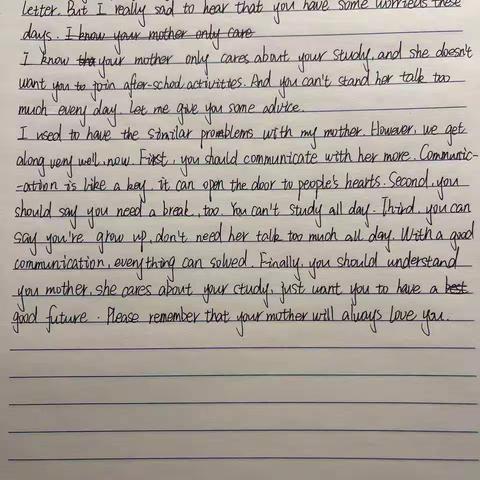 letter. But I really sad to hear that you have some worrieds these
days. I know your mother only care
I know tha your mother only cares about your study, and she doesn't
want you to join after-schod activitties. And you can't stand her talk too
much every day. Let me give you some advice.
I used to have the similar promblems with my mother. However, we get
along very well, now. First, you should communicate with her more. Communic-
-ation is like a key, it can open the door to people's hearts. Second, you
should say you need a break, too. You can't study all day. Third, you can
say you're grow up, don't need her talk too much all day. With a good
communication, everything can solved. Finally, you should understand
you mother, she cares about your study, just want you to have a best
good future. Please remember that your mother will always love you.